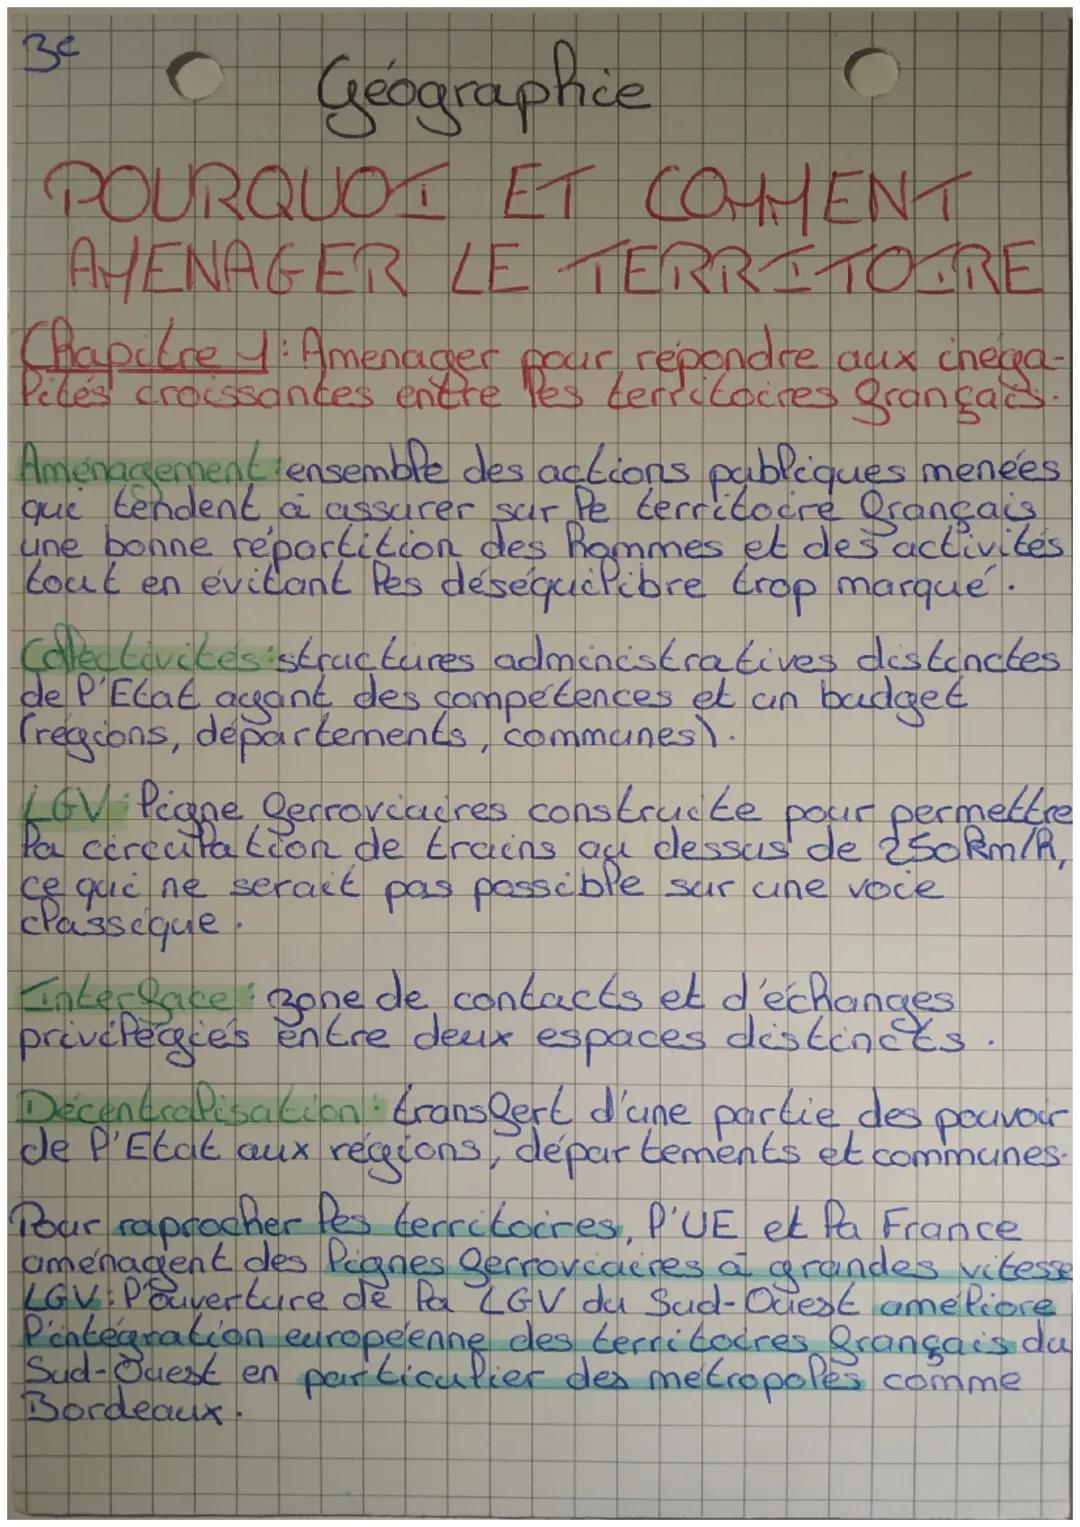 3e
Géographie
POURQUOI ET COMMENT
AMENAGER LE TERRITOIRE
Chapitre 1 : Amenager pour répondre aux inéga-
lités croissantes entre les territoires français.
Aménagement : ensemble des actions publiques menées
qui tendent à assurer sur le territoire français
une bonne répartition des hommes et des activités
tout en évitant les déséquilibre trop marqué.
Collectivités : structures administratives distinctes
de l'Etat ayant des compétences et un budget
(régions, départements, communes).
LGV : ligne ferroviaires construite pour permettre
la circulation de trains au dessus de 250km/h,
ce qui ne serait pas possible sur une voie
classique.
Interface : zone de contacts et d'échanges
privilégiés entre deux espaces distincts.
Décentralisation : transfert d'une partie des pouvoir
de l'Etat aux régions, départements et communes.
Pour raprocher les territoires, l'UE et la France
aménagent des lignes ferroviaires à grandes vitesse
LGV : l'ouverture de la LGV du Sud-Ouest améliore
l'intégration européenne des territoires français du
Sud-Ouest en particulier des métropoles comme
Bordeaux.